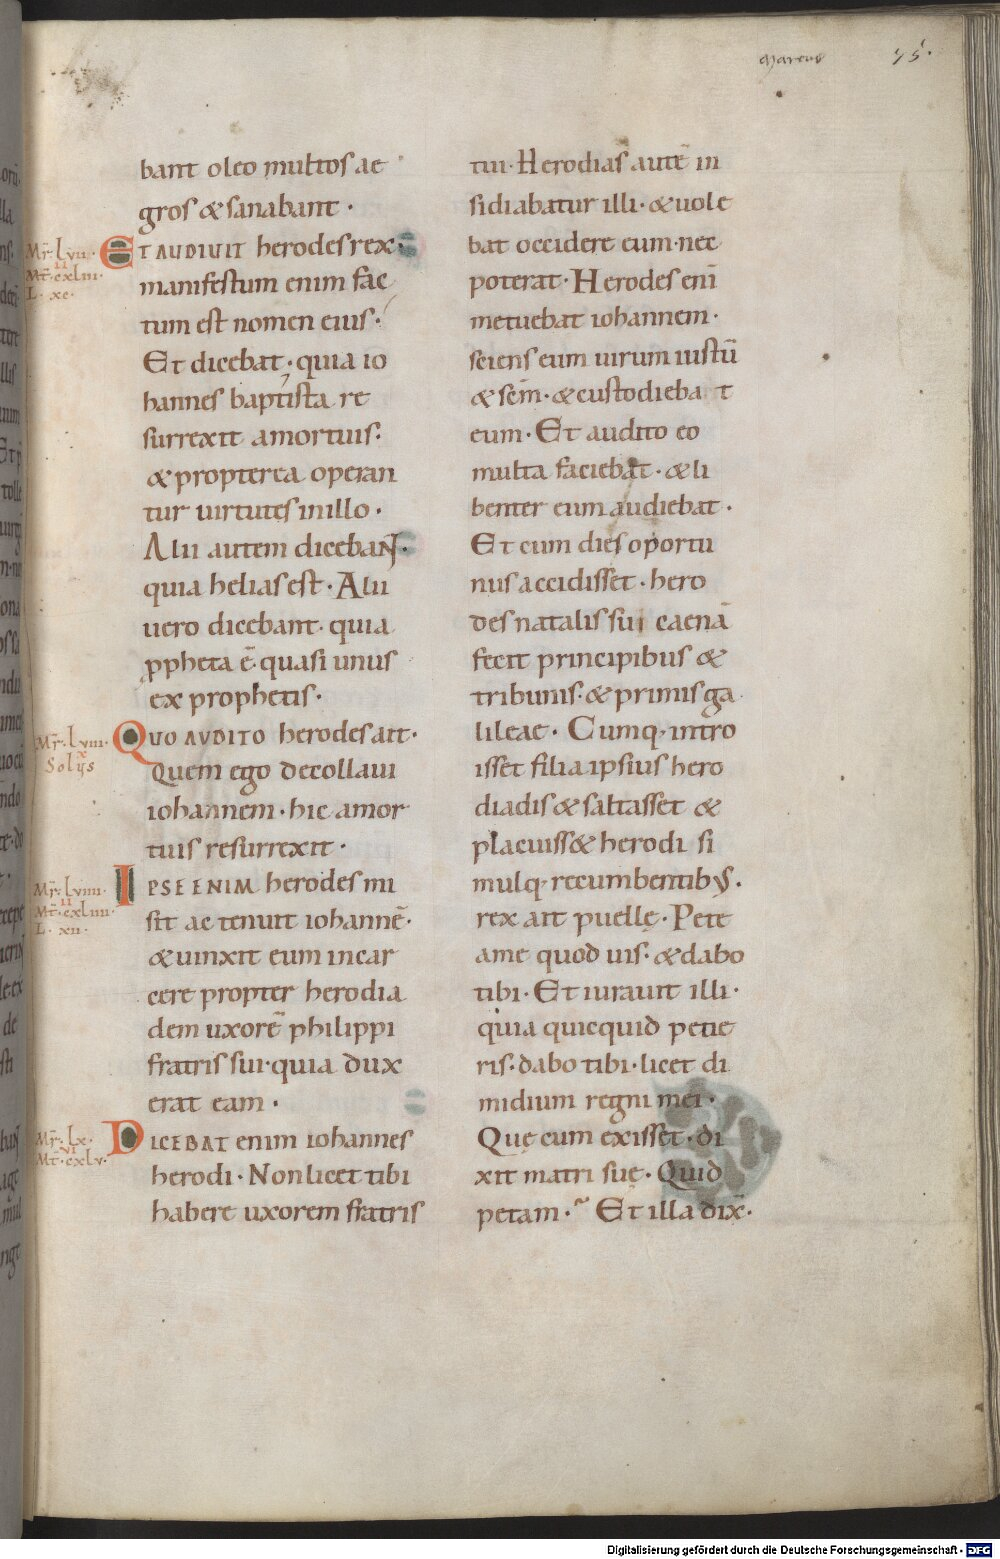 Marcus 75.
bant oleo multos ae
gros & sanabant ·
Mr̄. lvii. ET AUDIUIT herodes rex·
Mt̄. cxliii. II
L. xc.
manifestum enim fac
tum est nomen eius·
Et dicebat · quia io
hannes baptista re
surrexit amortuis:
& propterea operan
tur uirtutes inillo ·
Alii autem diceban̄t·
quia helias est · Alii
uero dicebant · quia
ppheta ē quasi unus
ex prophetis ·
Mr̄. lviii. QUO AUDITO herodes ait·
x
Solus
Quem ego decollaui
iohannem · hic amor
tuis resurrexit ·
Mr̄. lviiii. IPSE ENIM herodes mi
Mt̄. cxliiii. II
L. xii.
sit ac tenuit iohannē·
& uinxit eum in car
cere propter herodia
dem uxorē philippi
fratris sui · quia dux
erat eam ·
Mr̄. lx. DICEBAT enim iohannes
Mt̄. cxlv. VI
herodi · Non licet tibi
habere uxorem fratris
tui · Herodias autē in
sidiabatur illi · & uole
bat occidere eum · nec
poterat · Herodes eni̅
metuebat iohannem ·
sciens eum uirum iustū
& scm̄ · & custodiebat
eum · Et audito eo
multa faciebat · & li
benter eum audiebat ·
Et cum dies oportu
nus accidisset · hero
des natalis sui caenā
fecit principibus &
tribunis · & primis ga
lileae · Cumq; intro
isset filia ipsius hero
diadis & saltasset &
placuiss& herodi si
mulq; recumbentibus ·
rex ait puellę · Pete
ame quod uis · & dabo
tibi · Et iurauit illi ·
quia quicquid petie
ris · dabo tibi · licet di
midium regni mei ·
Quę cum exisset · di
xit matri suę · Quid
petam · Et illa dix̄ ·
Digitalisierung gefördert durch die Deutsche Forschungsgemeinschaft - DFG